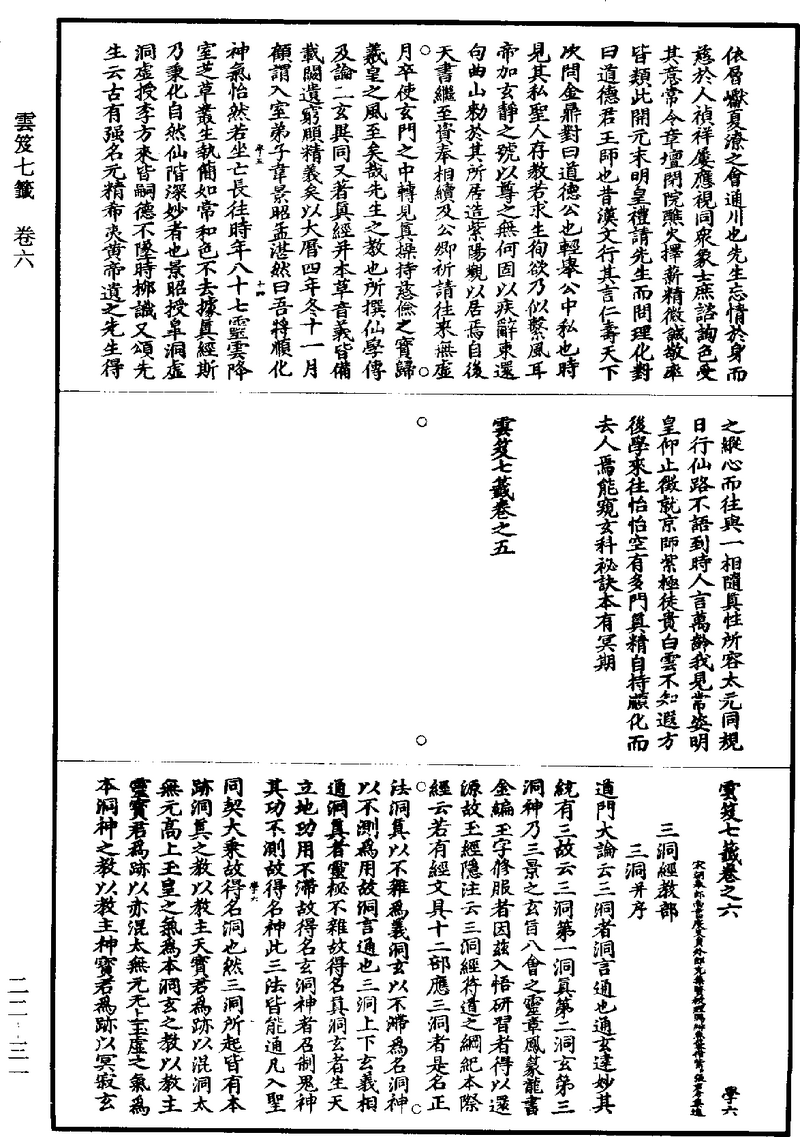 雲笈七籤　卷六
依層巘夏潦之會通川也先生忘情於身而
慈於人禎祥屢應視同衆象士庶諮詢色受
其意常令章壇閉院醮火擇薪精微誠敬率
皆類此開元末明皇禮請先生而問理化對
曰道德君王師也昔漢文行其言仁壽天下
次問金鼎對曰道德公也輕舉公中私也時
見其私聖人存教若求生徇欲乃似繫風耳
帝加玄靜之號以尊之無何固以疾辭東還
句曲山勑於其所居造紫陽觀以居焉自後
天書繼至資奉相續及公卿祈請往來無虛
月卒使玄門之中轉見真操持慈儉之寶歸
羲皇之風至矣哉先生之教也所撰仙學傳
及論二玄異同又著真經并本草音義皆備
載闕遺窮頤精義矣以大曆四年冬十一月
顧謂入室弟子韋景昭孟湛然曰吾將順化
神氣怡然若坐亡長往時年八十七靈雲降
室芝草叢生執簡如常和色不去據真經斯
乃秉化自然仙階深妙者也景昭授皐洞虛
洞虛授李方來皆嗣德不墜時柳識又頌先
生云古有强名元精希夷黃帝遺之先生得
之縱心而往與一相隨真性所容太元同規
日行仙路不語到時人言萬齡我見常姿明
皇仰止徵就京師紫極徒貴白雲不知遐方
後學來往怡怡空有多門真精自持顧化而
去人焉能窺玄科祕訣本有冥期
雲笈七籤卷之五
雲笈七籤卷之六　學六
三洞經教部
三洞并序
道門大論云三洞者洞言通也通玄達妙其
統有三故云三洞第一洞真第二洞玄第三
洞神乃三景之玄旨八會之靈章鳳篆龍書
金編玉字修服者因茲入悟研習者得以還
源故玉經隱注云三洞經符道之綱紀本際
經云若有經文具十二部應三洞者是名正
法洞真以不雜爲義洞玄以不滯爲名洞神
以不測爲用故洞言通也三洞上下玄義相
通洞真者靈祕不雜故得名真洞玄者生天
立地功用不滯故得名玄洞神者召制鬼神
其功不測故得名神此三法皆能通凡入聖
同契大乘故得名洞也然三洞所起皆有本
跡洞真之教以教主天寶君爲跡以混洞太
無元高上玉皇之氣爲本洞玄之教以教主
靈寶君爲跡以赤混太無元無上玉虛之氣爲
本洞神之教以教主神寶君爲跡以冥寂玄
二二－三一